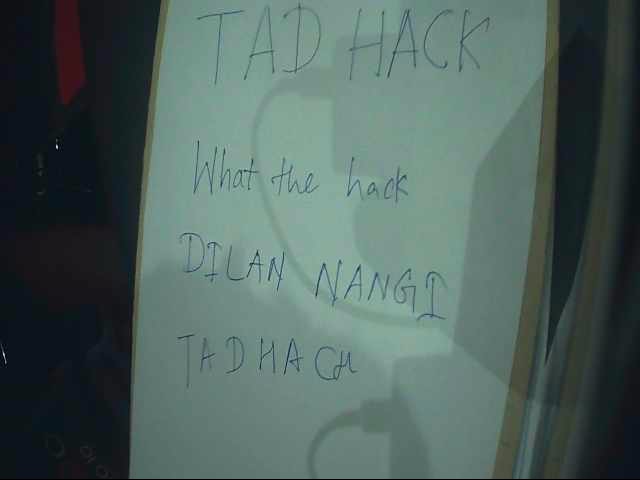 TAD HACK
What the hack
DILAN NANGI
TADHACK